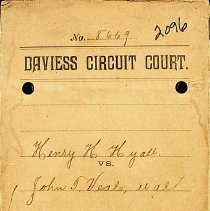 2096
No. 8669
DAVIESS CIRCUIT COURT.
Henry H. Hyatt.
VS.
John T. Veale, et al